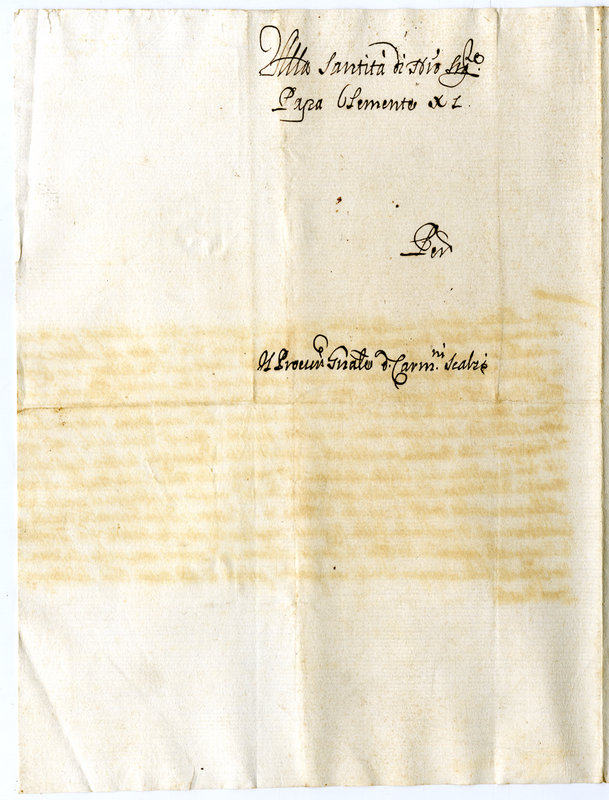 Alla Santità di Nrõ Sigre.
Papa Clemente XI.
Per
Il Procur. Gñale d. Carmni. Scalzi